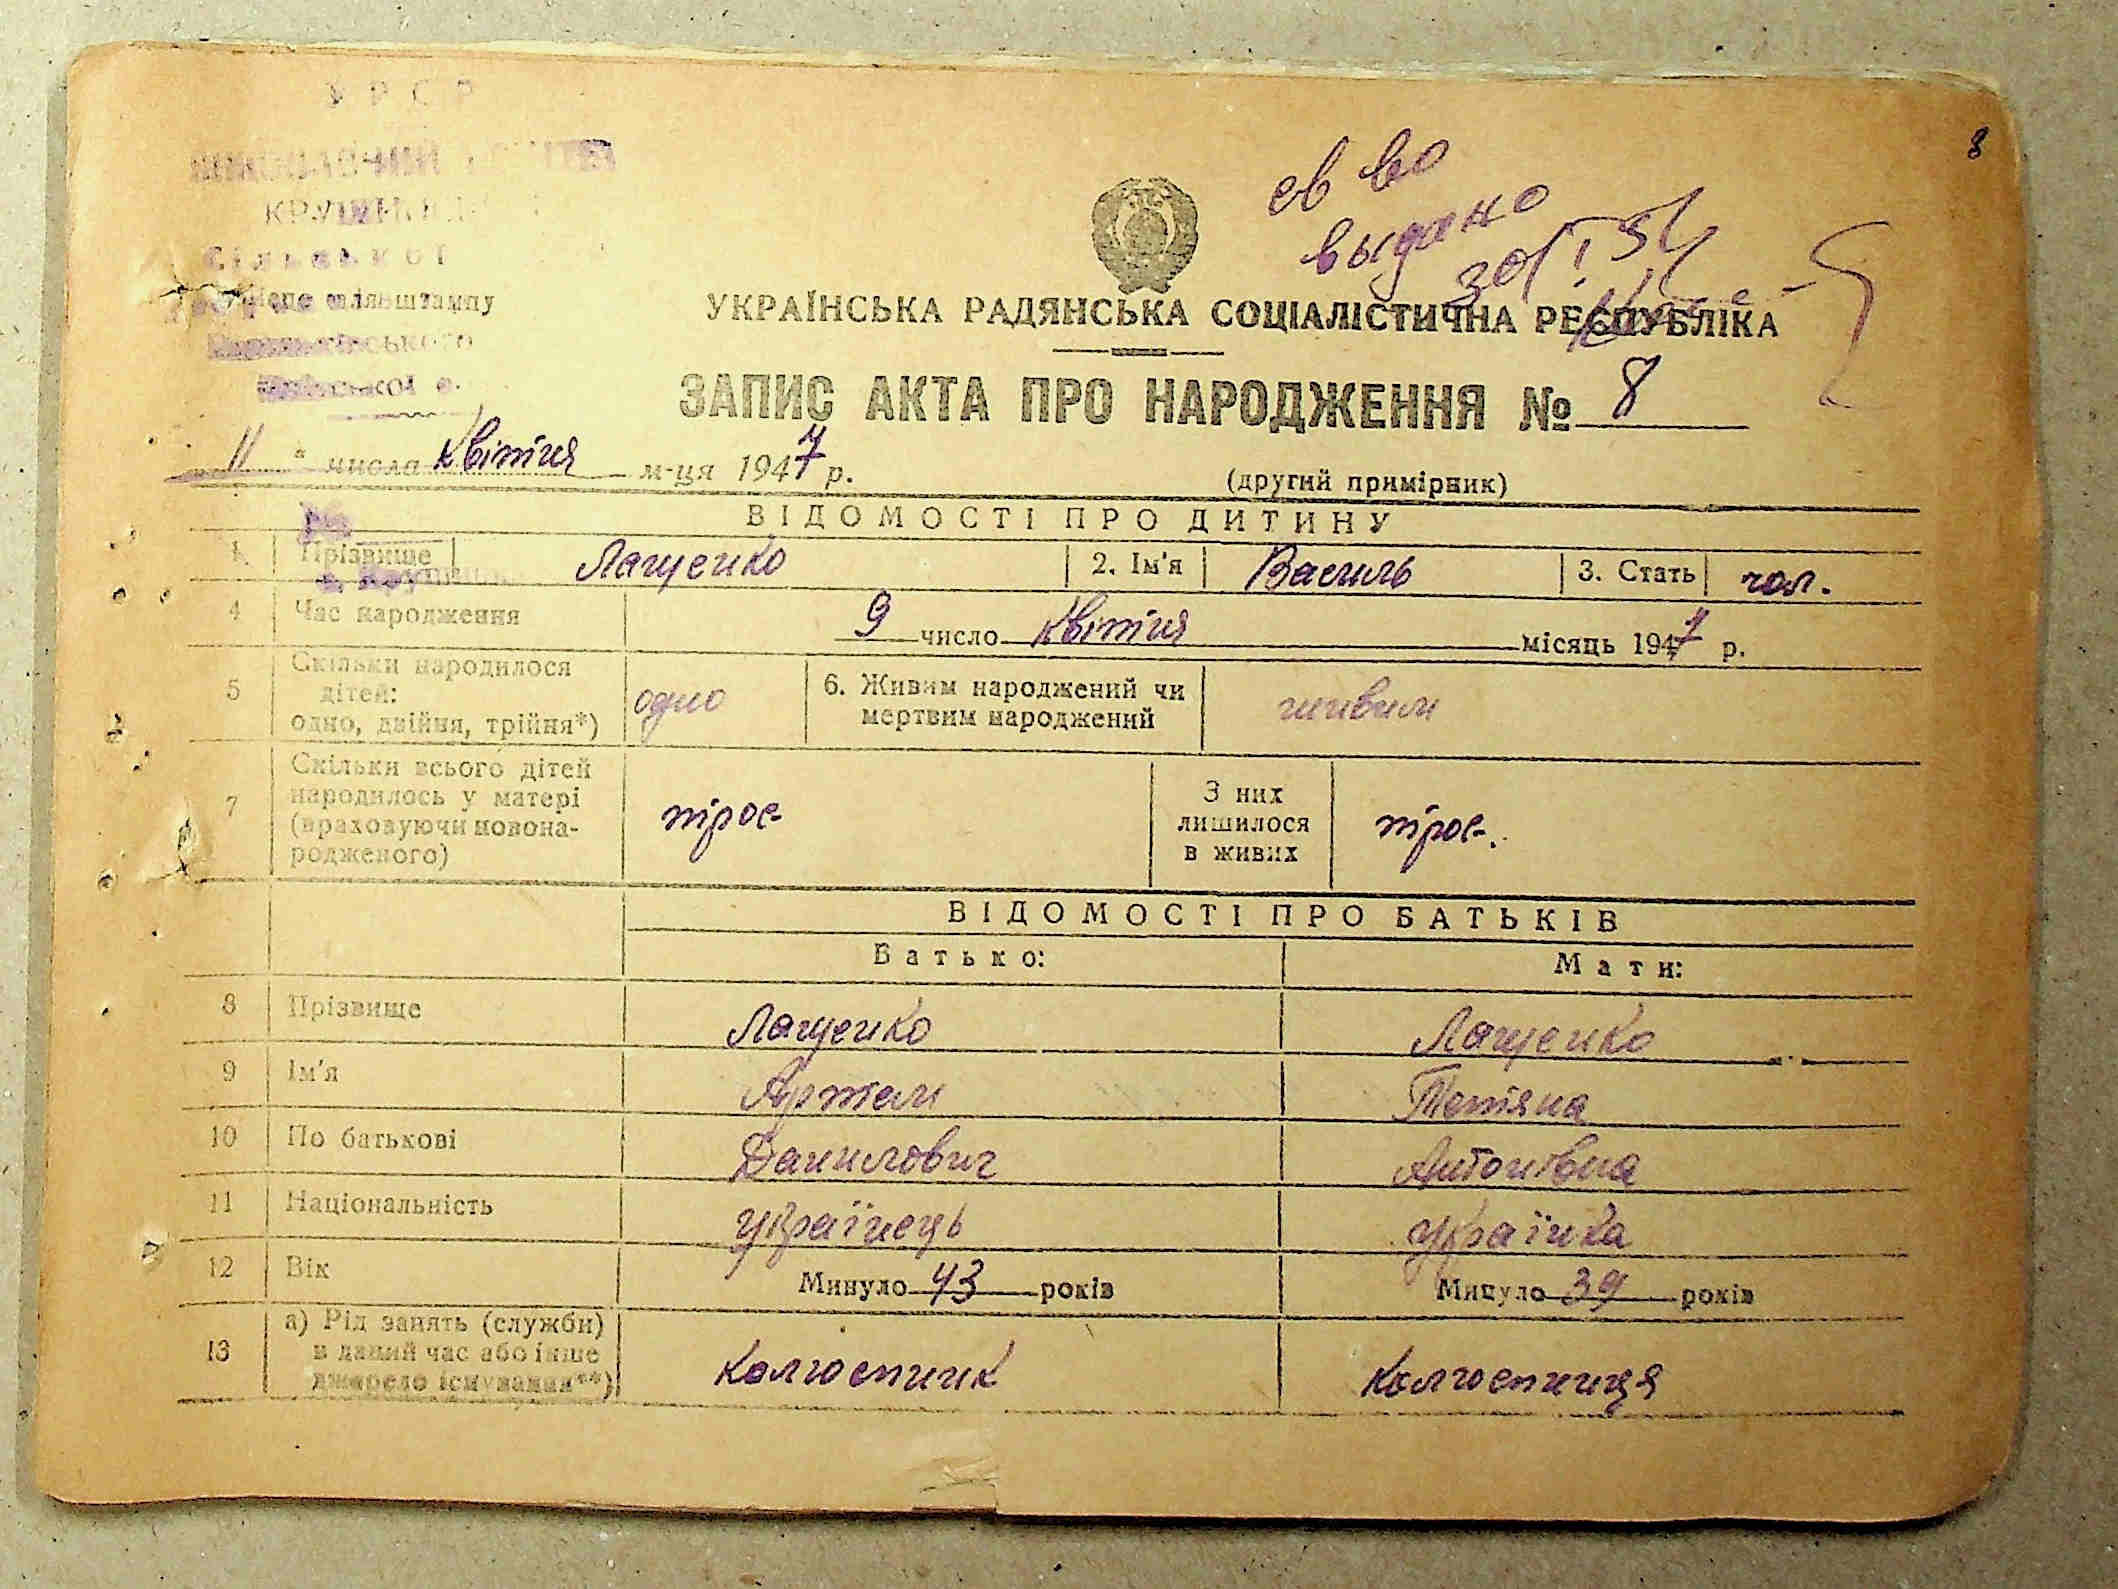 У Р С Р
КРУПИ
Сільської
Місце для штампу
ської о.
8
св во
выдано
30/I 54
УКРАЇНСЬКА РАДЯНСЬКА СОЦІАЛІСТИЧНА РЕСПУБЛІКА
ЗАПИС АКТА ПРО НАРОДЖЕННЯ № 8
11 " числа квітня м-ця 1947 р.
(другий примірник)
ВІДОМОСТІ ПРО ДИТИНУ
1 Прізвище Лащенко 2. Ім'я Василь 3. Стать чол.
4 Час народження 9 число квітня місяць 1947 р.
5 Скільки народилося
дітей:
одно, двійня, трійня*) одно 6. Живим народжений чи
мертвим народжений живим
7 Скільки всього дітей
народилось у матері
(враховуючи новона-
родженого) троє
З них
лишилося
в живих троє.
ВІДОМОСТІ ПРО БАТЬКІВ
Батько: Мати:
8 Прізвище Лащенко Лащенко
9 Ім'я Артем Тетяна
10 По батькові Данилович Антонівна
11 Національність українець українка
12 Вік Минуло 43 років Минуло 39 років
13 а) Рід занять (служби)
в даний час або інше
джерело існування**) колгоспник колгоспниця